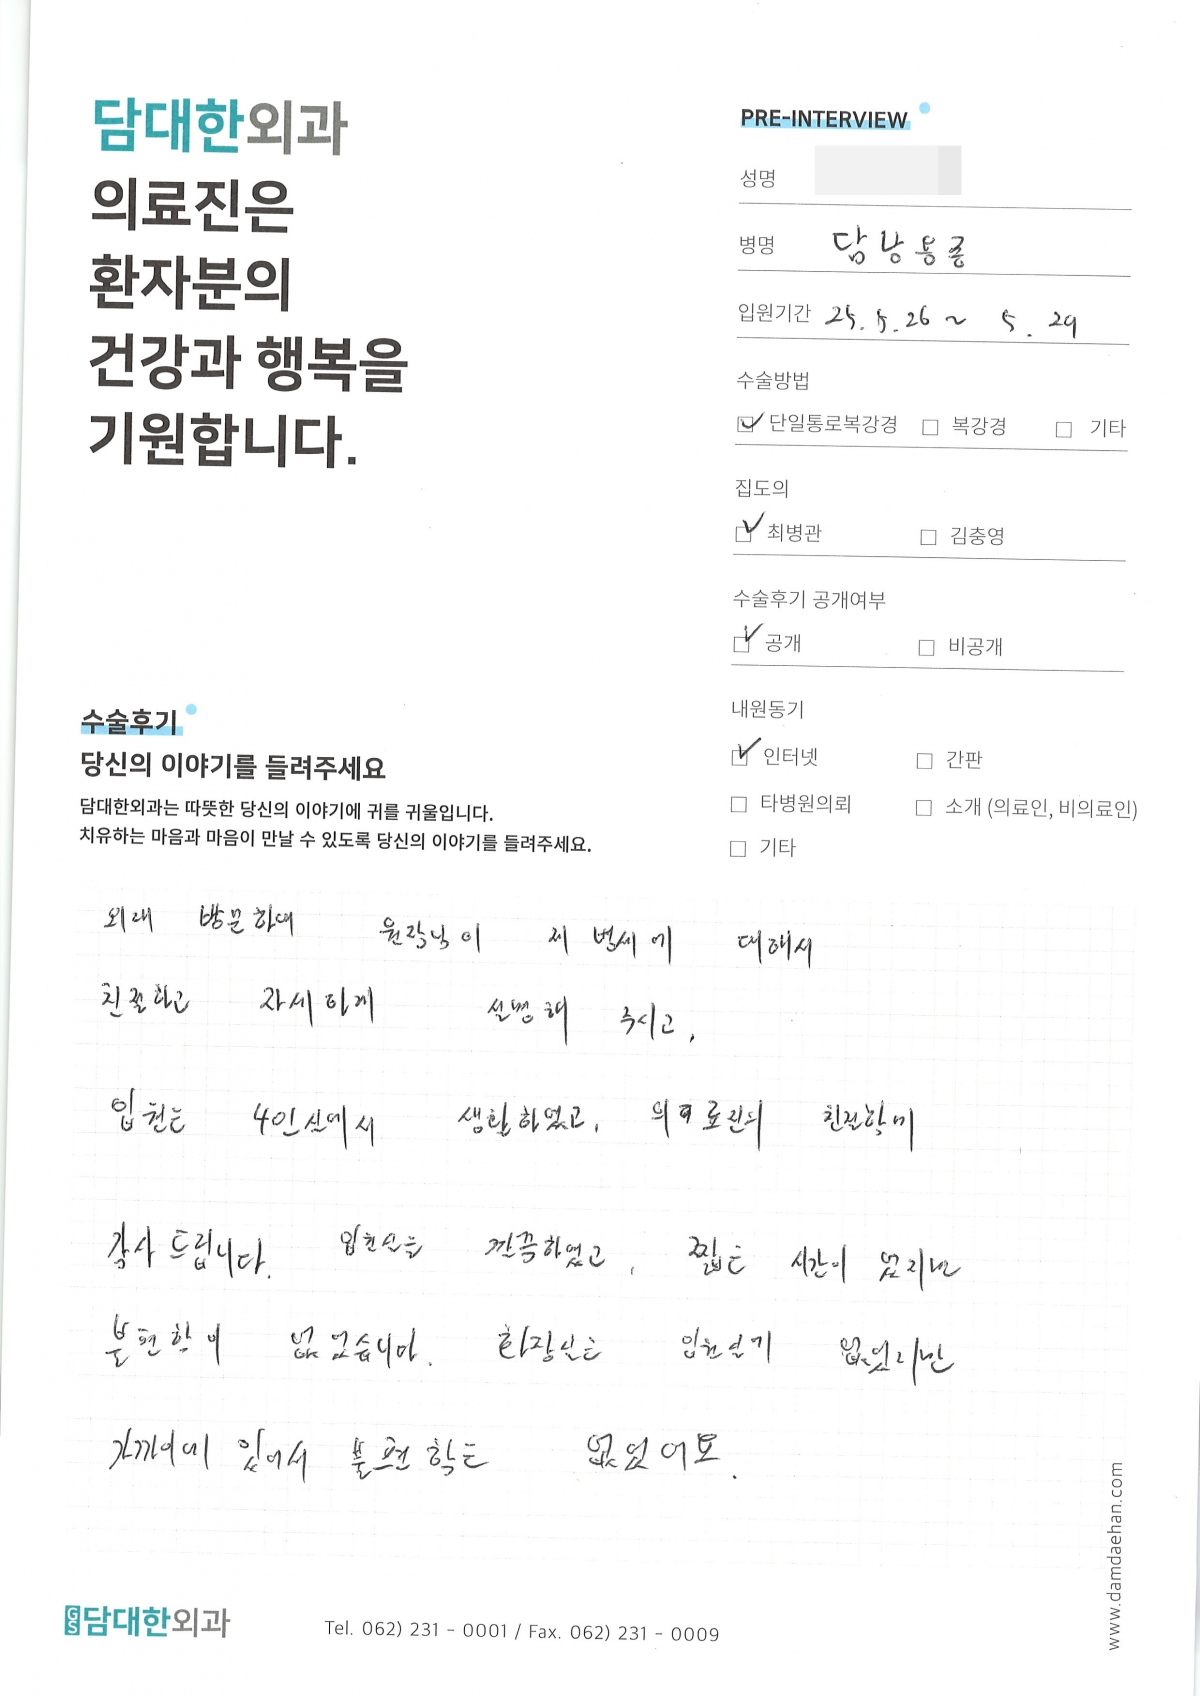 담대한외과
의료진은
환자분의
건강과 행복을
기원합니다.
PRE-INTERVIEW
성명
병명 담낭용종
입원기간 25. 5. 26 ~ 5. 29
수술방법
단일통로복강경 복강경 기타
집도의
최병관 김충영
수술후기 공개여부
공개 비공개
내원동기
인터넷 간판
타병원의뢰 소개 (의료인, 비의료인)
기타
수술후기
당신의 이야기를 들려주세요
담대한외과는 따뜻한 당신의 이야기에 귀를 귀울입니다.
치유하는 마음과 마음이 만날 수 있도록 당신의 이야기를 들려주세요.
외래 방문하여 원장님이 제 병세에 대해서
친절하고 자세하게 설명해 주시고,
입원은 4인실에서 생활하였고, 의료진의 친절함에
감사드립니다. 입원실은 깔끔하였고, 짧은 시간이 었지만
불편함이 없었습니다. 화장실은 입원실가 없었지만
가까이에 있어서 불편함은 없었어요.
GS 담대한외과
Tel. 062) 231 - 0001 / Fax. 062) 231 - 0009
www.damdaehan.com